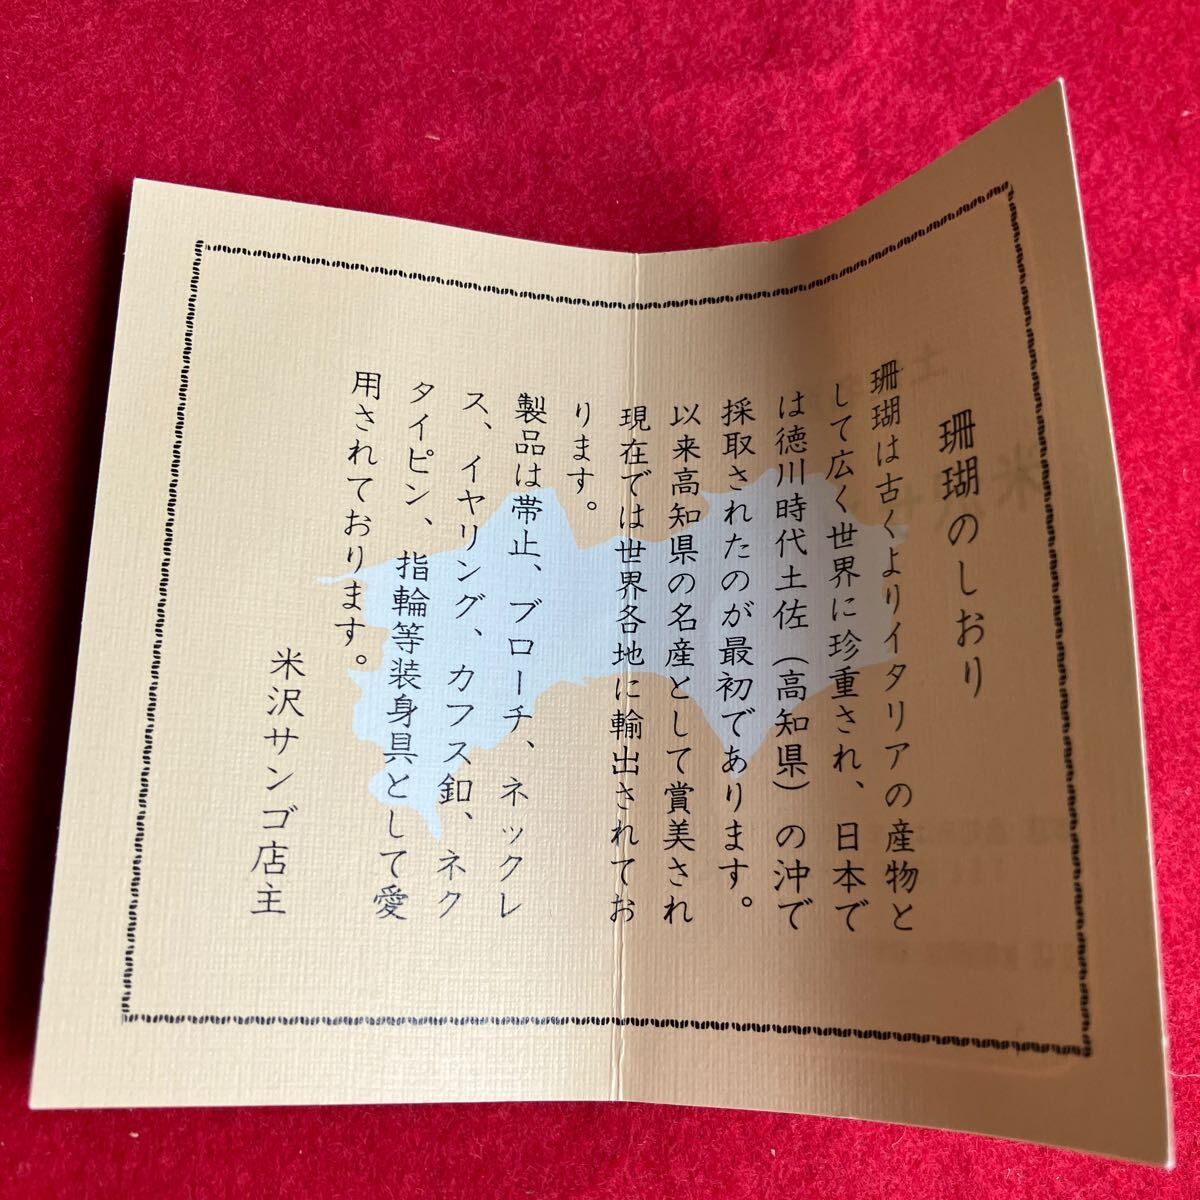 珊瑚のしおり
珊瑚は古くよりイタリアの産物と
して広く世界に珍重され、日本で
は徳川時代土佐（高知県）の沖で
採取されたのが最初であります。
以来高知県の名産として賞美され
現在では世界各地に輸出されてお
ります。
製品は帯止、ブローチ、ネックレ
ス、イヤリング、カフス釦、ネク
タイピン、指輪等装身具として愛
用されております。
米沢サンゴ店主